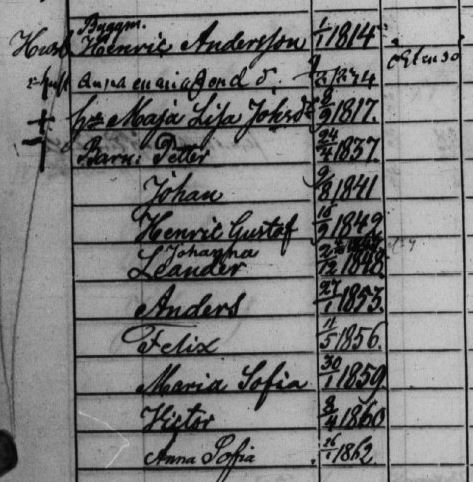 Byggm.
Husb Henric Andersson 1/1 1814
Anna
hu Maja Lisa Johsdr 8/9 1817.
Barn: Petter 24/4 1837.
Johan 9/8 1841
Henric Gustaf 18/9 1842
Johanna
Leander 12 1848
Anders 27/1 1853.
Felix 11/5 1856.
Maria Sofia 30/1 1859
Victor 8/4 1860
Anna Sofia 26/1 1862.